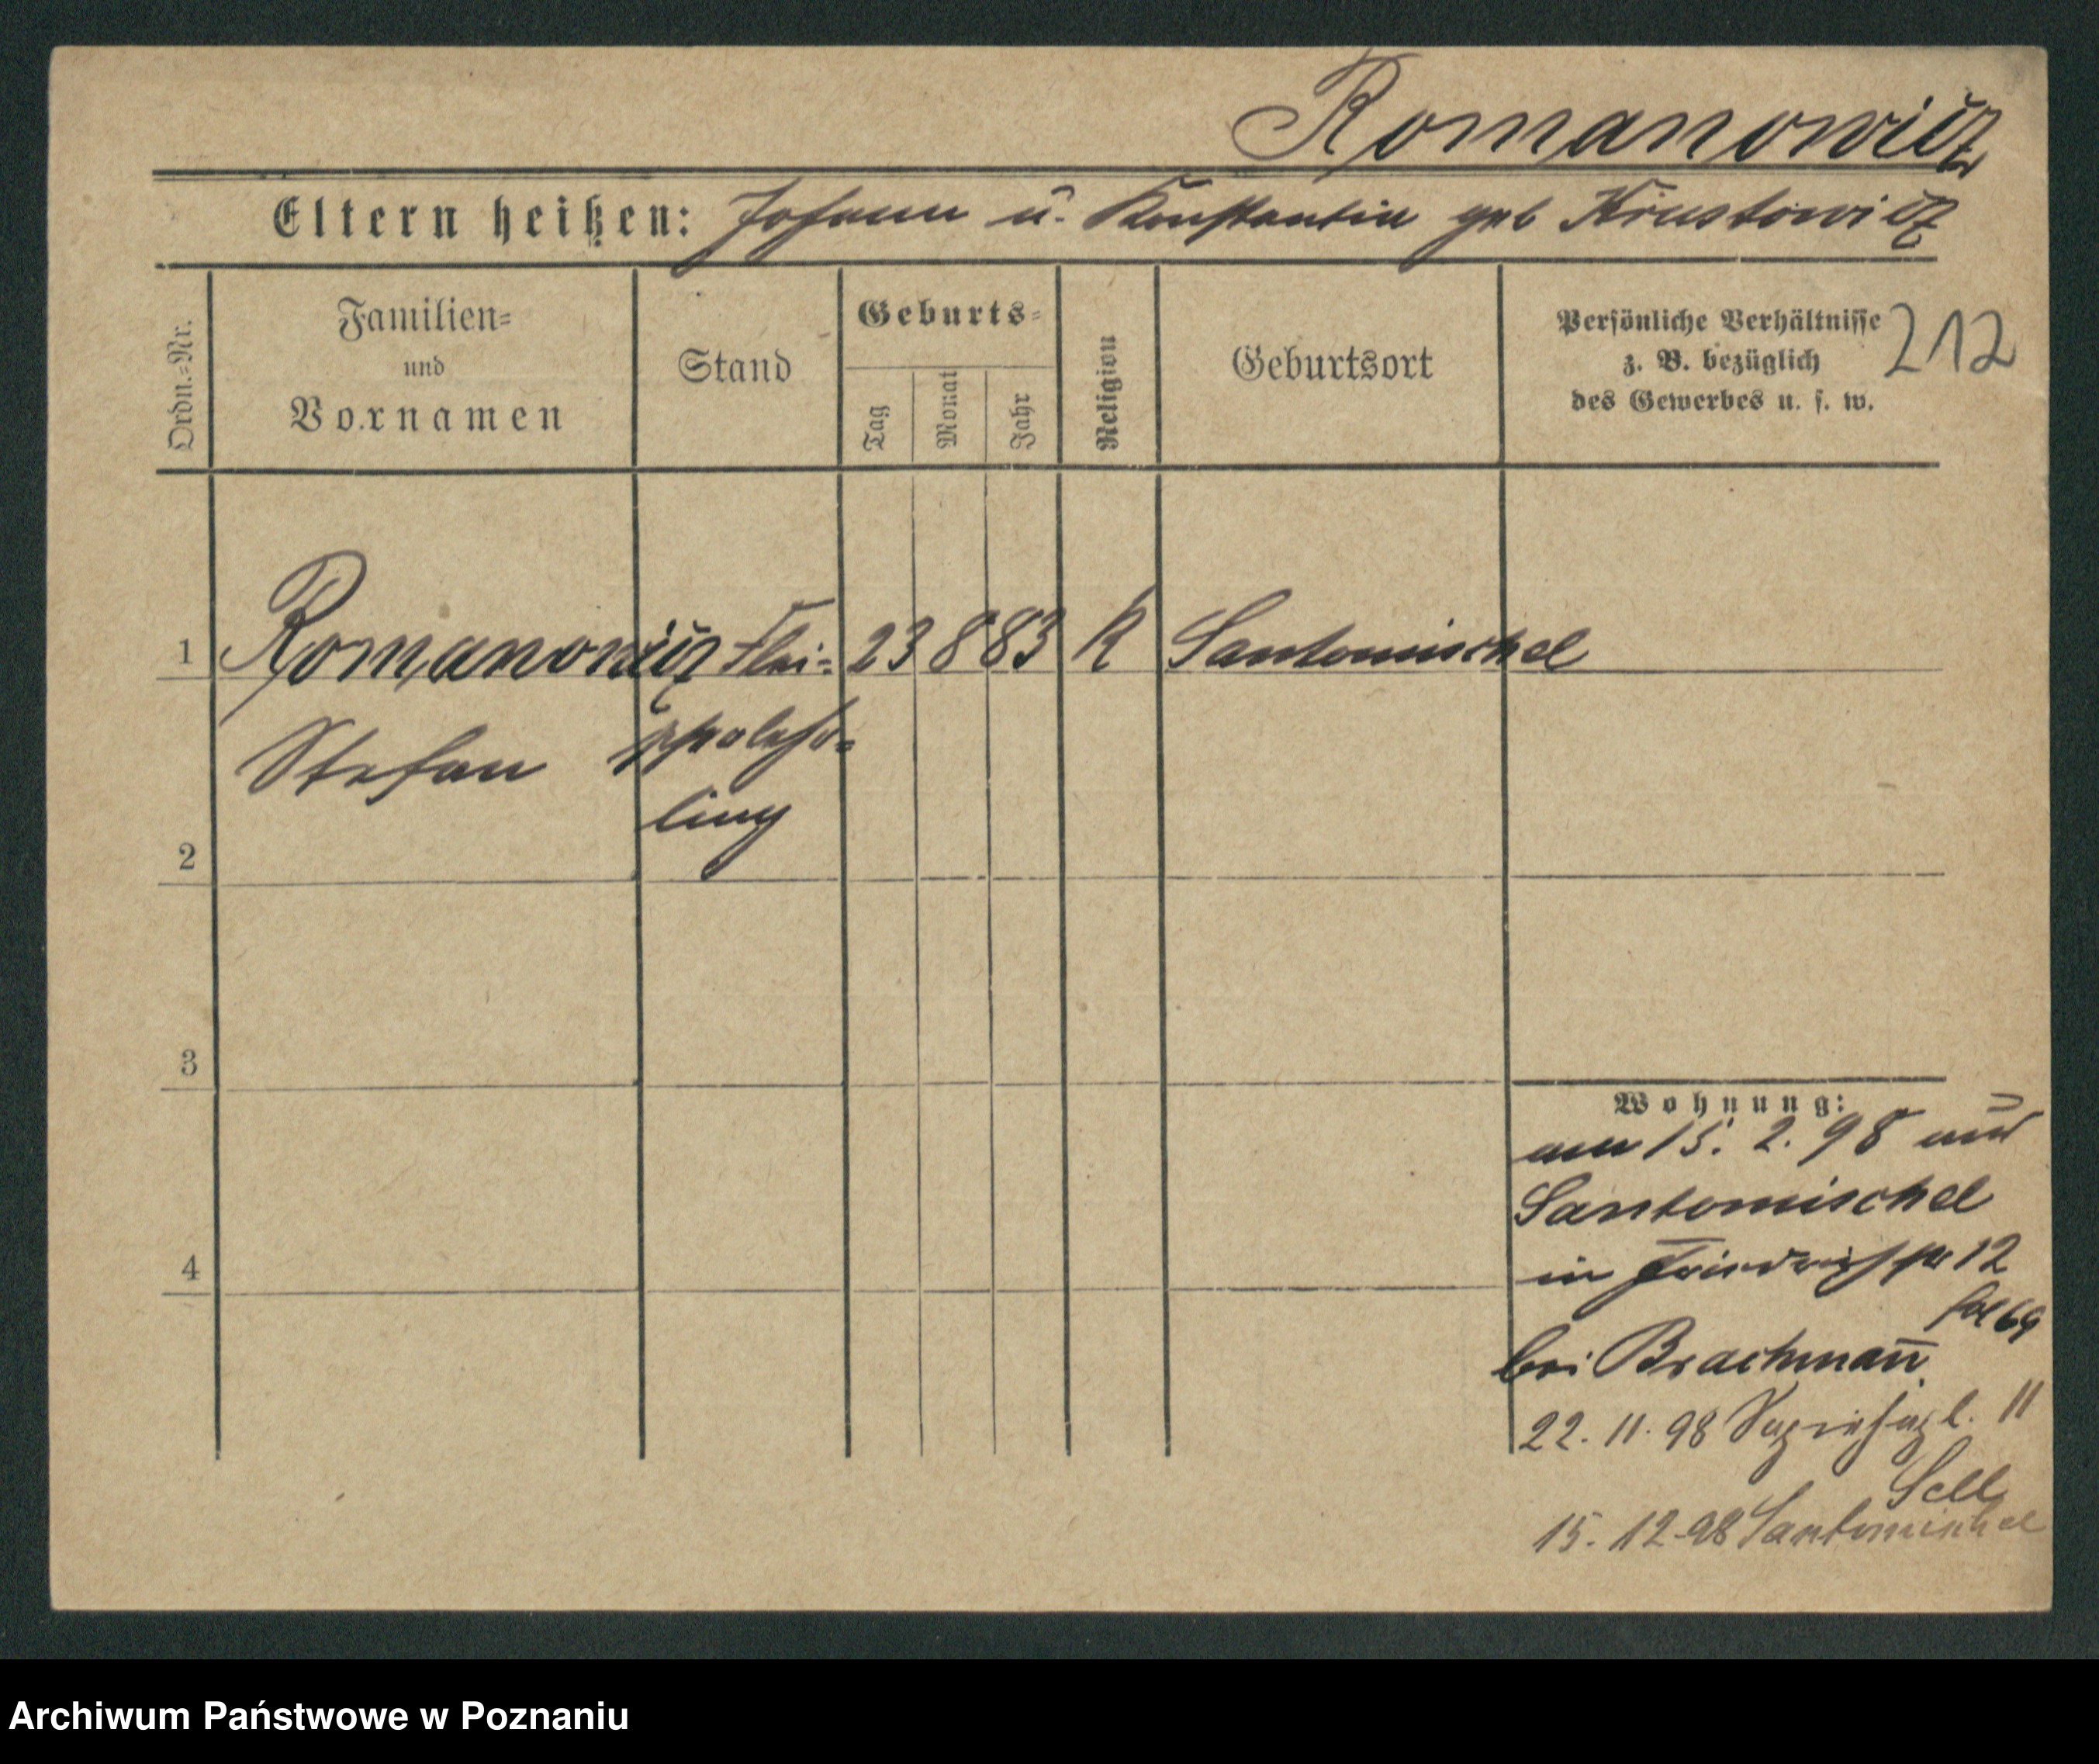 Romanowicz
Eltern heißen: Johann u. Konstantin geb
212
Ordn.=Nr.
Familien=
und
Vornamen
Stand
Geburts=
Tag
Monat
Jahr
Religion
Geburtsort
Persönliche Verhältnisse
z. B. bezüglich
des Gewerbes u. s. w.
1 Romanowicz Flei= 23 8 83 K Santomischel
Stefan
ling
2
3
4
Wohnung:
am 15. 2. 98 aus
Santomischel
in Friedrichstr 12
fol 69
bei Brachmann
22. 11. 98 11
Sell
15. 12 98 Santomischel
Archiwum Państwowe w Poznaniu